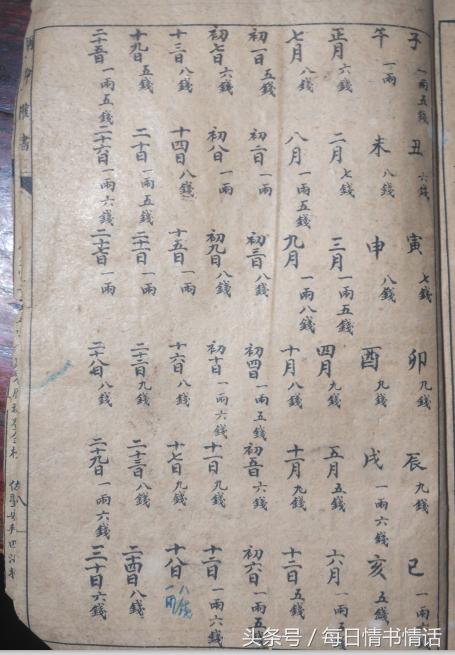 子 一兩五錢 丑 六錢 寅 七錢 卯 九錢 辰 九錢 巳 一兩
午 一兩 未 八錢 申 八錢 酉 九錢 戌 一兩六錢 亥 五錢
正月 六錢 二月 七錢 三月 一兩五錢 四月 九錢 五月 五錢 六月 一兩五
七月 八錢 八月 一兩五錢 九月 一兩八錢 十月 八錢 十一月 九錢 十二月 五錢
初一日 五錢 初二日 一兩 初三日 八錢 初四日 一兩五錢 初五日 六錢 初六日 一兩五
初七日 六錢 初八日 一兩 初九日 八錢 初十日 一兩六錢 十一日 九錢 十二日 一兩六錢
十三日 八錢 十四日 八錢 十五日 一兩 十六日 八錢 十七日 九錢 十八日 一兩八錢
十九日 五錢 二十日 一兩五錢 二十一日 一兩 二十二日 九錢 二十三日 八錢 二十四日 八錢
二十五日 一兩五錢 二十六日 一兩六錢 二十七日 一兩 二十八日 八錢 二十九日 一兩六錢 三十日 六錢
头条号 / 每日情书情话